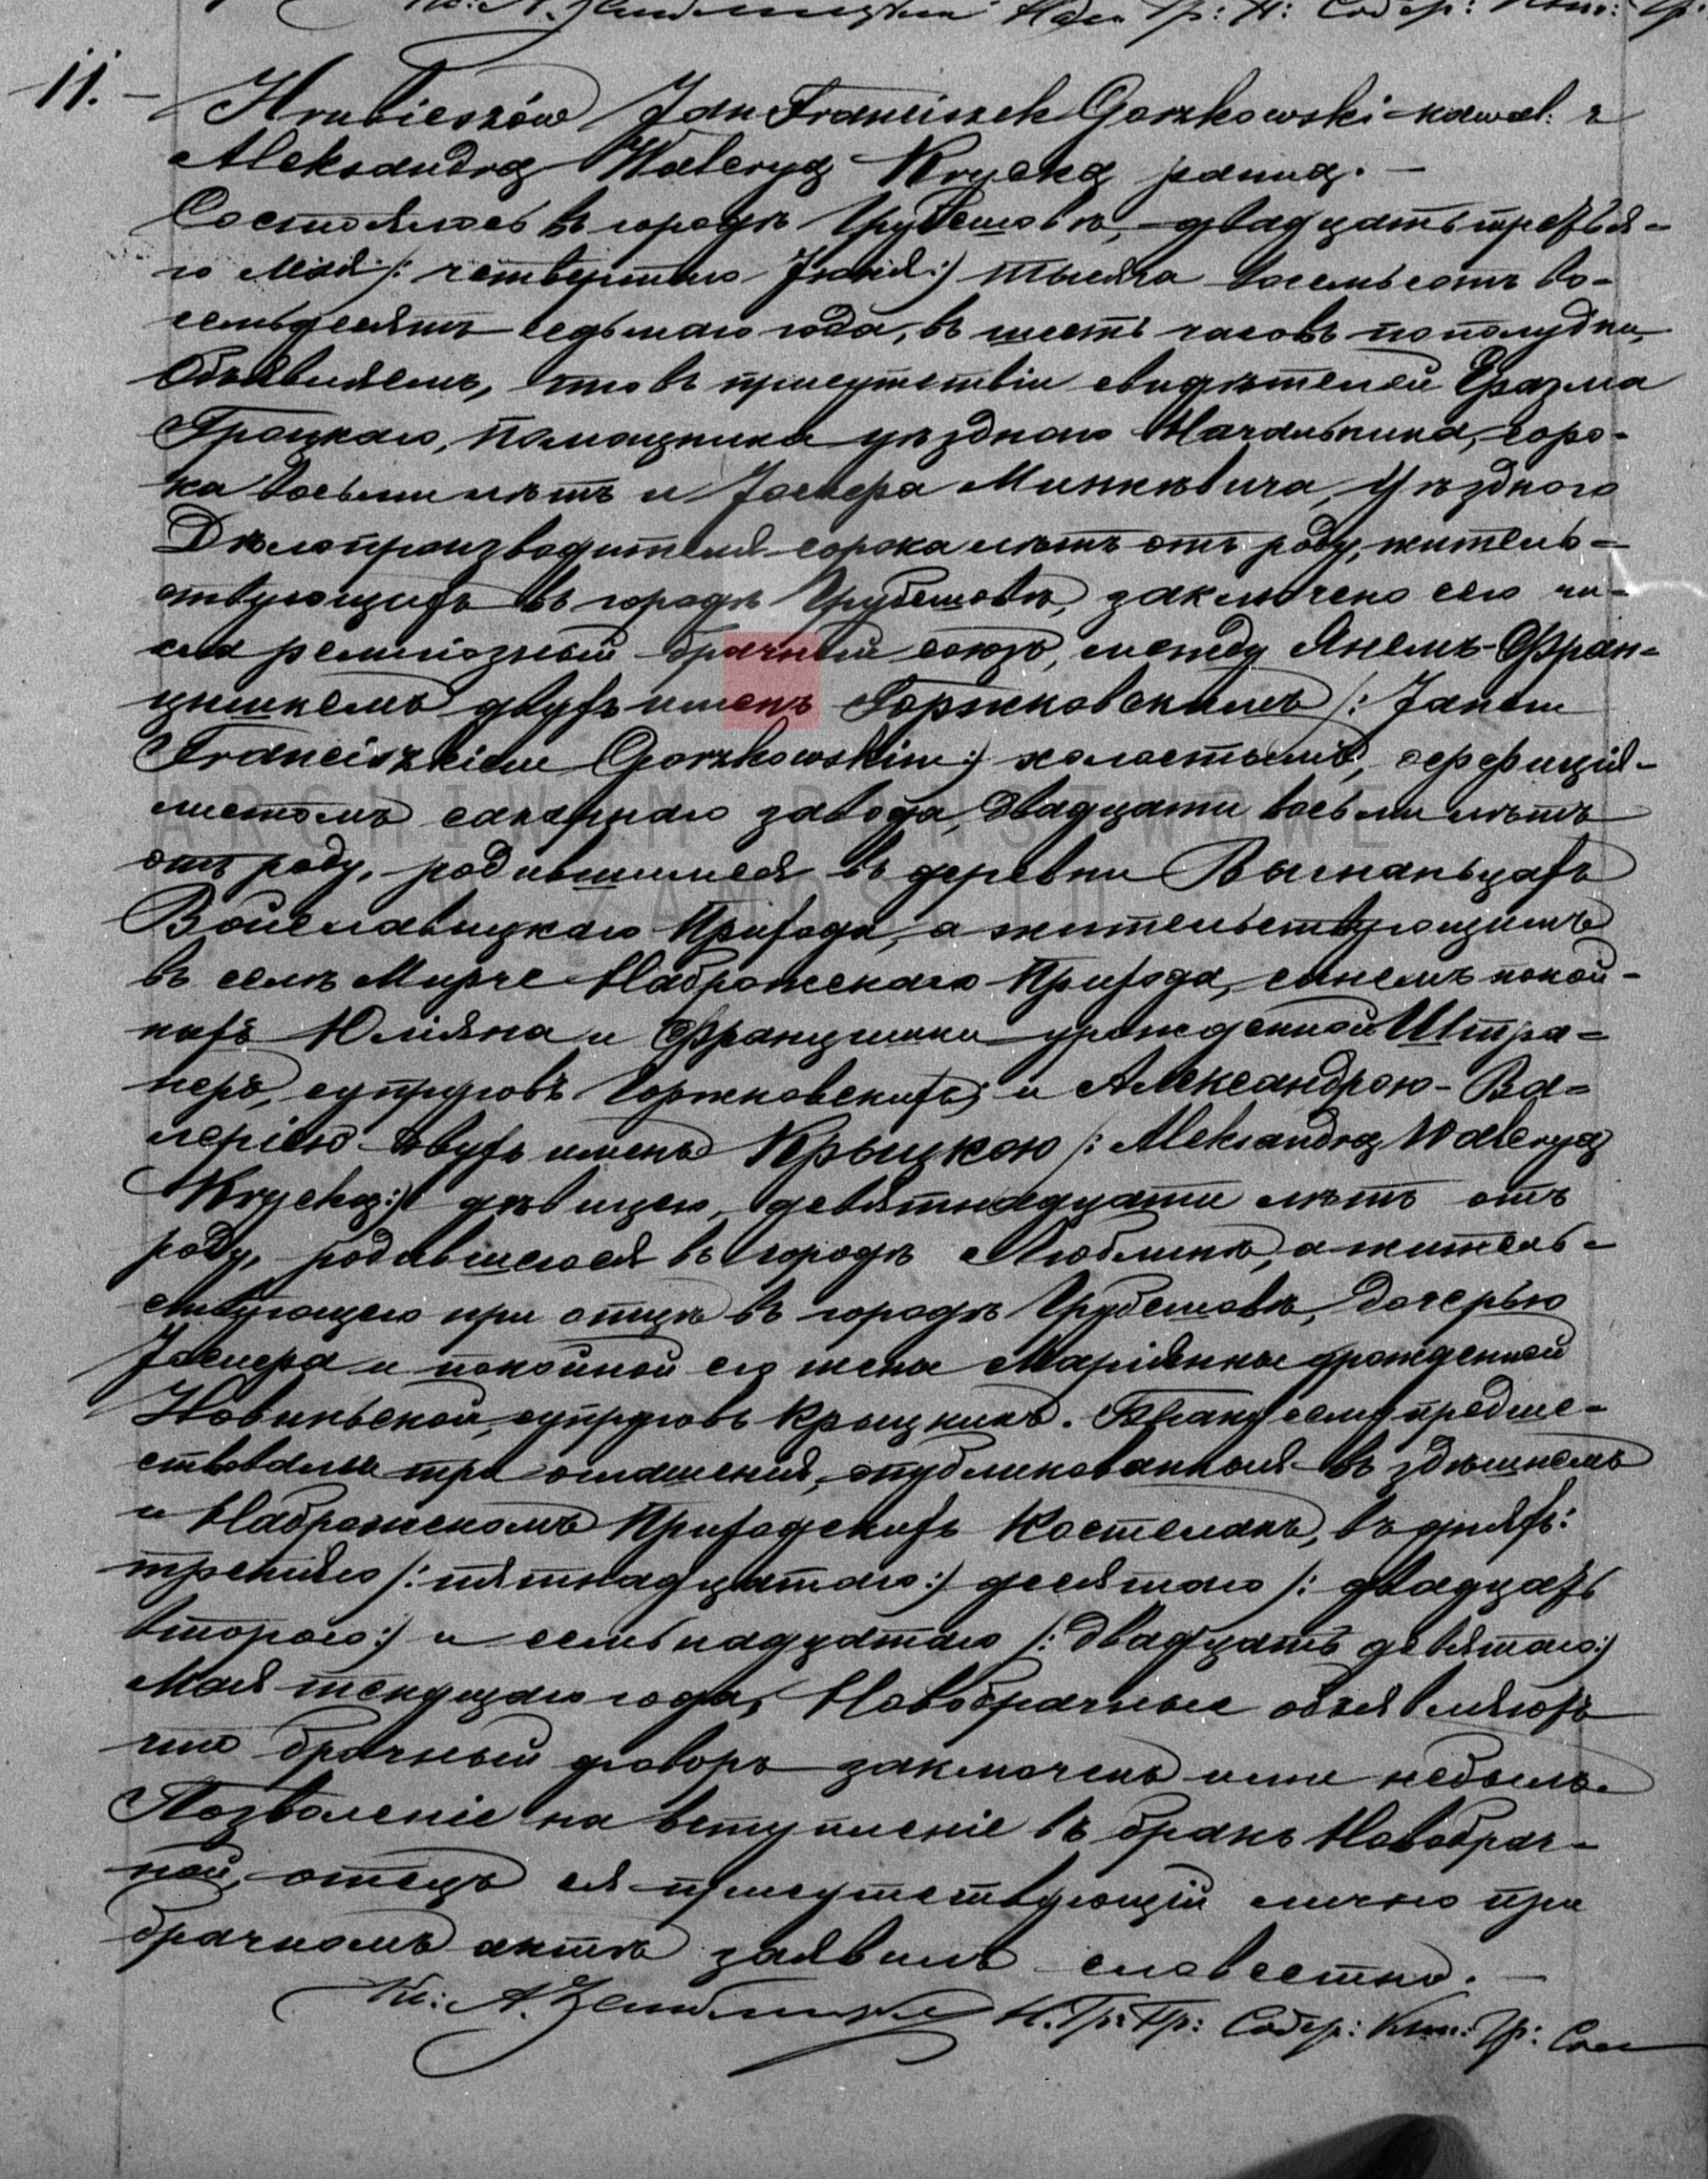 11. — Hrubieszów Jan Franciszek Gorzkowski kawal: z
Aleksandrą Waleryą Krycką panną. —
Состоялось въ городѣ Грубешовѣ, двадцать третья-
го Мая /: четвертаго Іюня :/ тысяча восемьсотъ во-
семьдесятъ седьмаго года, въ шесть часовъ по полудни,
Объявляемъ, что въ присутствіи свидѣтелей Эразма
Троцкаго, Помощника уѣзднаго Начальника, соро-
ка восьми лѣтъ и Іосифа Минкѣвича, Уѣзднаго
Дѣлопроизводителя сорока лѣтъ отъ роду, житель-
ствующихъ въ городѣ Грубешовѣ, заключено сего чи-
сла религіозный брачный союзъ, между Янемъ-Фран-
цишкемъ двухъ именъ Горжковскимъ /: Janem
Franciszkiem Gorzkowskim :/ холостымъ, оффиція-
листомъ сахарнаго завода, двадцати восьми лѣтъ
отъ роду, родившимся въ деревни Выгнаньцахъ
Войславицкаго Прихода, а жительствующимъ
въ селѣ Мирче Наброжскаго Прихода, сынемъ покой-
ныхъ Юліяна и Францишки урожденной Штра-
неръ, супруговъ Горжковскихъ; и Александрою-Ва-
леріею двухъ именъ Крыцкою /: Aleksandrą Waleryą
Krycką :/ дѣвицею, девятнадцати лѣтъ отъ
роду, родившеюся въ городѣ Люблинѣ, а житель-
ствующею при отцѣ въ городѣ Грубешовѣ, дочерью
Іосифа и покойной его жены Маріянны урожденной
Новиньской, супруговъ Крыцкихъ. Браку сему предше-
ствовали три оглашенія, опубликованныя въ здѣшнемъ
и Наброжскомъ Приходскихъ Костелахъ, въ дняхъ:
третьяго /: пятнадцатаго :/ десятаго /: двадцать
втораго :/ и семьнадцатаго /: двадцать девятаго :/
Мая текущаго года, Новобрачные объявляютъ
что брачный договоръ заключенъ ими небылъ.
Позволеніе на вступленіе въ бракъ Новобрач-
ной, отецъ ея присутствующій лично при
брачномъ актѣ заявилъ словестно. —
Кс: А. Н. Гр: Пр: Содер: Кни: Гр: Сост